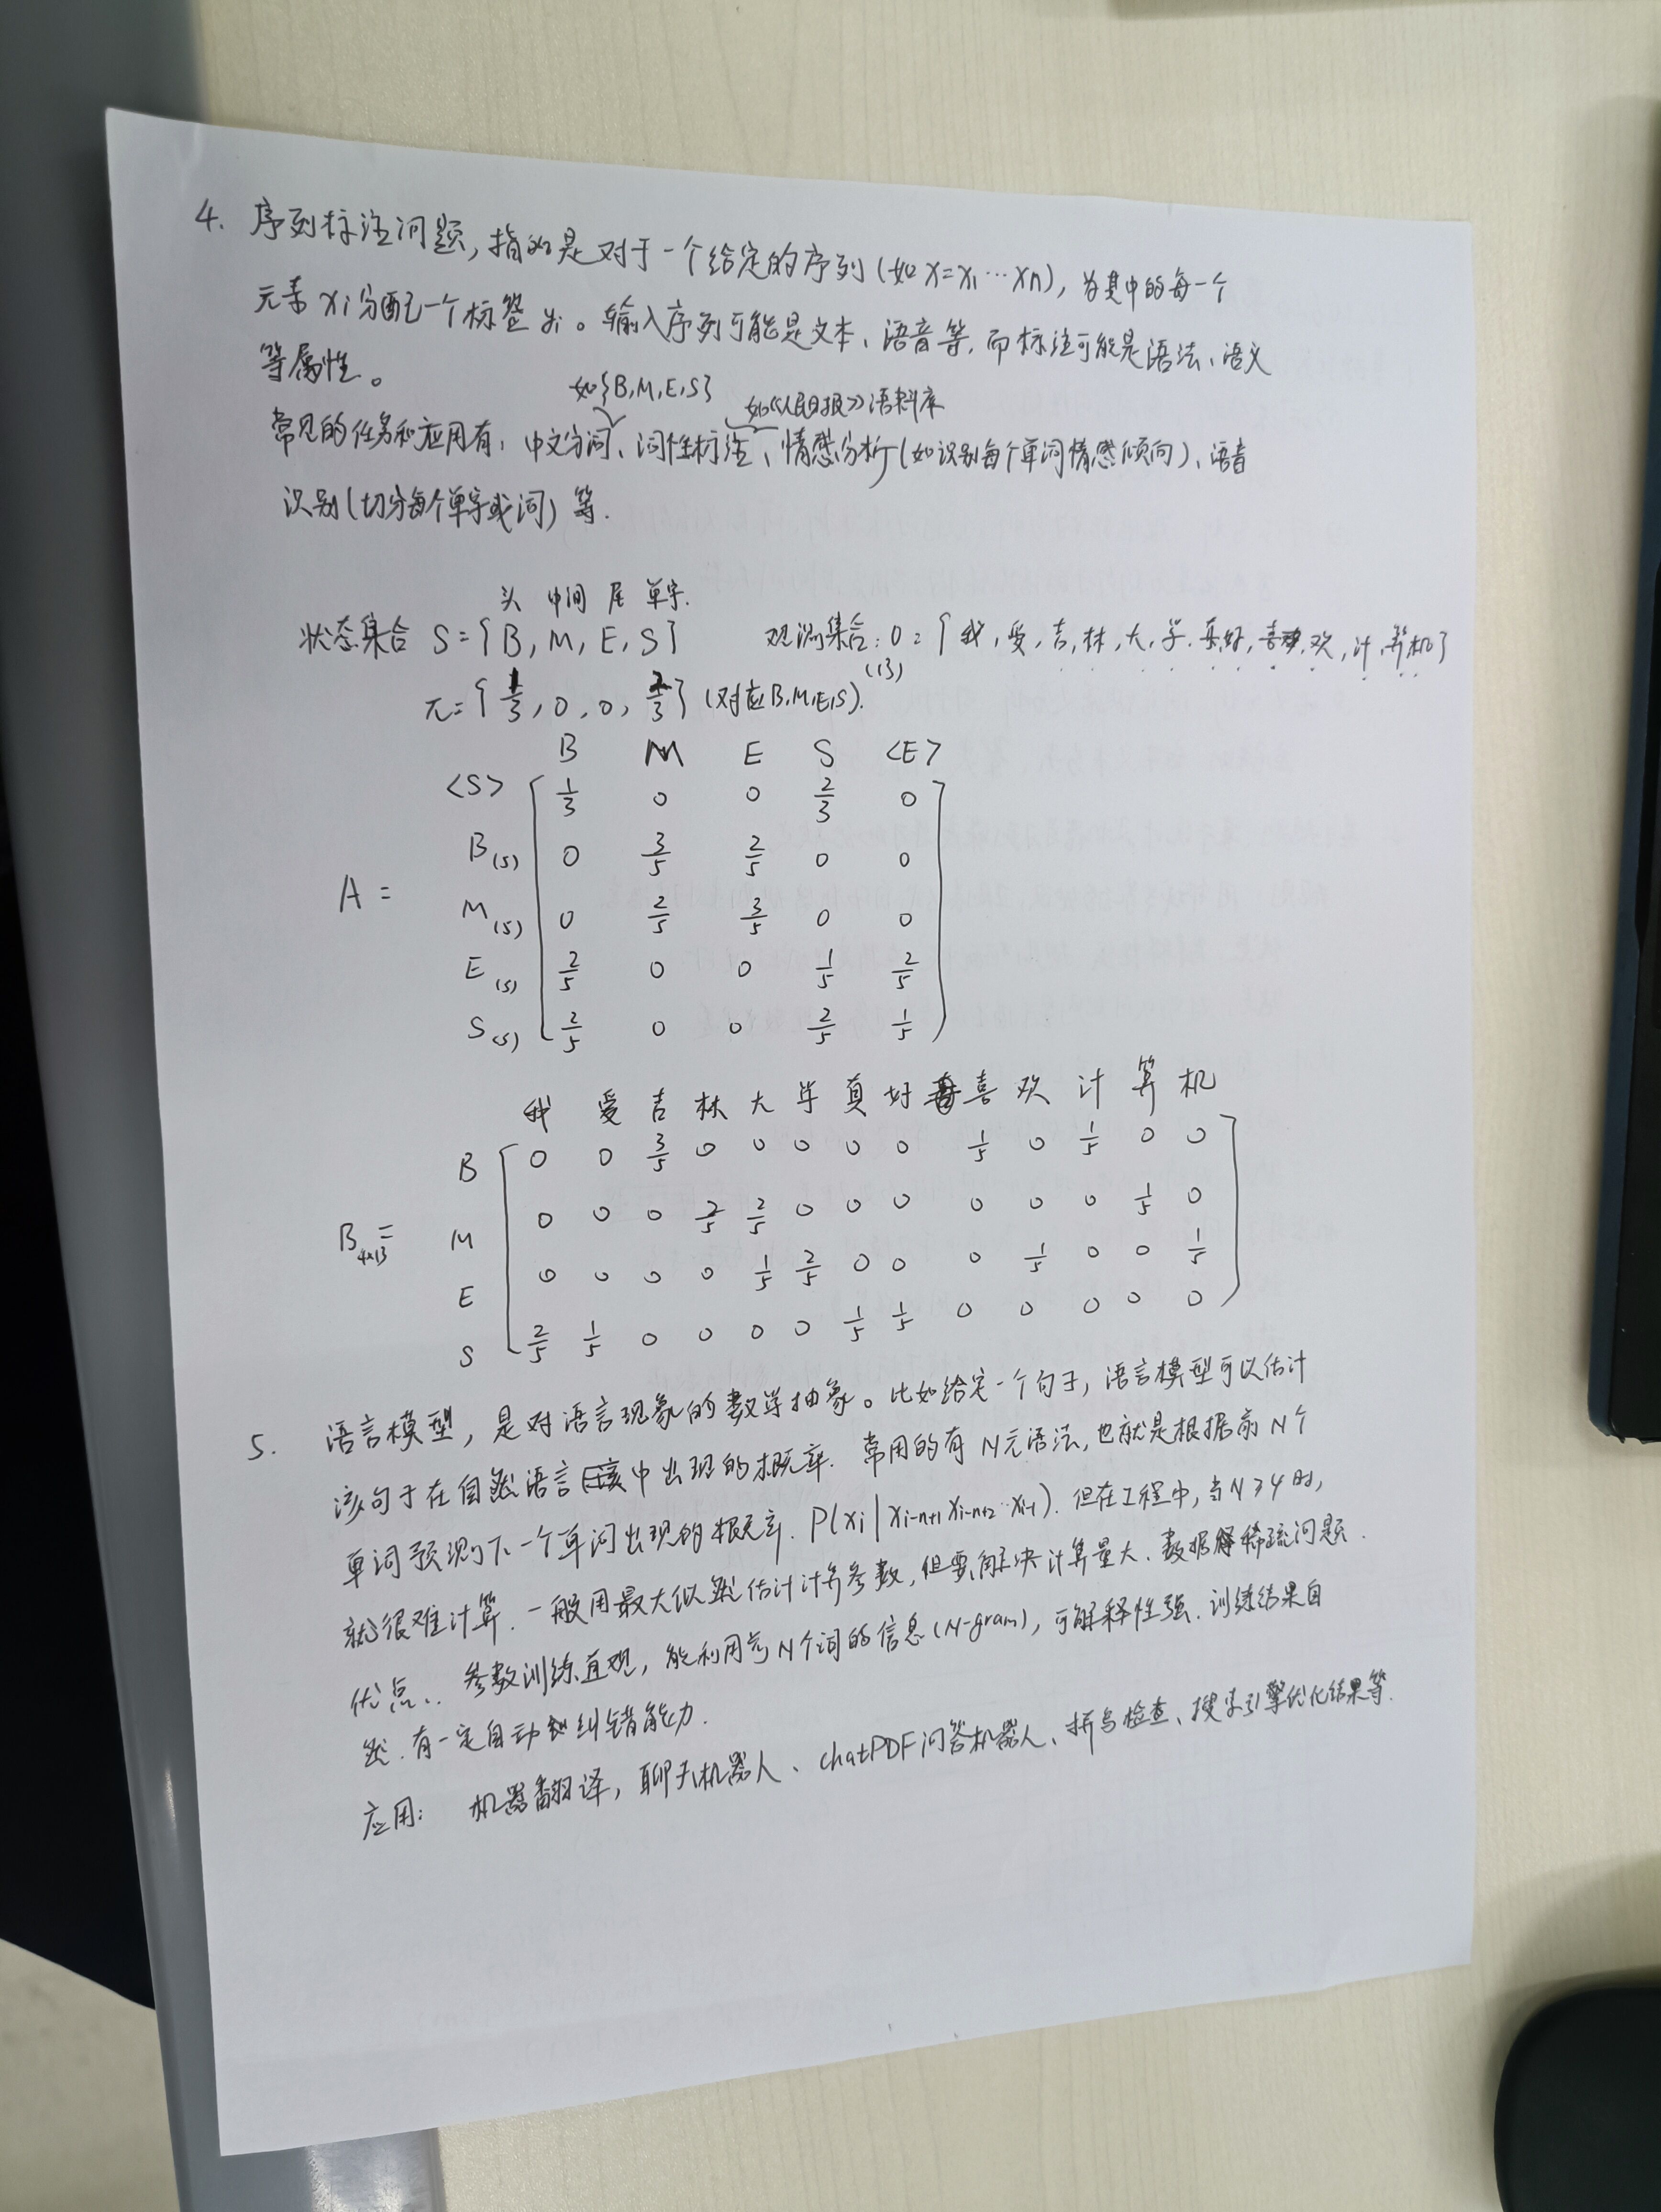 4. 序列标注问题，指的是对于一个给定的序列(如X=x₁…xn)，为其中的每一个
元素xi分配一个标签yi。输入序列可能是文本、语音等,而标注可能是语法、语义
等属性。
如{B,M,E,S} 如《人民日报》语料库
常见的任务和应用有：中文分词、词性标注、情感分析(如识别每个单词情感倾向)、语音
识别(切分每个单字或词)等.
头 中间 尾 单字.
状态集合 S={B, M, E, S} 观测集合: O={我,爱,吉,林,大,学,真,好,喜,欢,计,算,机}
(13)
π={1/3, 0, 0, 2/3} (对应B,M,E,S).
B M E S <E>
<S> 1/3 0 0 2/3 0
B(5) 0 3/5 2/5 0 0
A = M(5) 0 2/5 3/5 0 0
E(5) 2/5 0 0 1/5 2/5
S(5) 2/5 0 0 2/5 1/5
我 爱 吉 林 大 学 真 好 喜 欢 计 算 机
B 0 0 3/5 0 0 0 0 0 1/5 0 1/5 0 0
B4×13 = M 0 0 0 2/5 2/5 0 0 0 0 0 0 1/5 0
E 0 0 0 0 1/5 2/5 0 0 0 1/5 0 0 1/5
S 2/5 1/5 0 0 0 0 1/5 1/5 0 0 0 0 0
5. 语言模型，是对语言现象的数学抽象。比如给定一个句子，语言模型可以估计
该句子在自然语言中出现的概率. 常用的有N元语法,也就是根据前N个
单词预测下一个单词出现的概率. P(xi|xi-n+1 xi-n+2…xi-1). 但在工程中,当N≥4时,
就很难计算. 一般用最大似然估计计算参数,但要解决计算量大、数据稀疏问题.
优点: 参数训练直观，能利用前N个词的信息(N-gram)，可解释性强. 训练结果自
然.有一定自动纠错能力.
应用: 机器翻译，聊天机器人、chatPDF问答机器人、拼写检查、搜索引擎优化结果等.